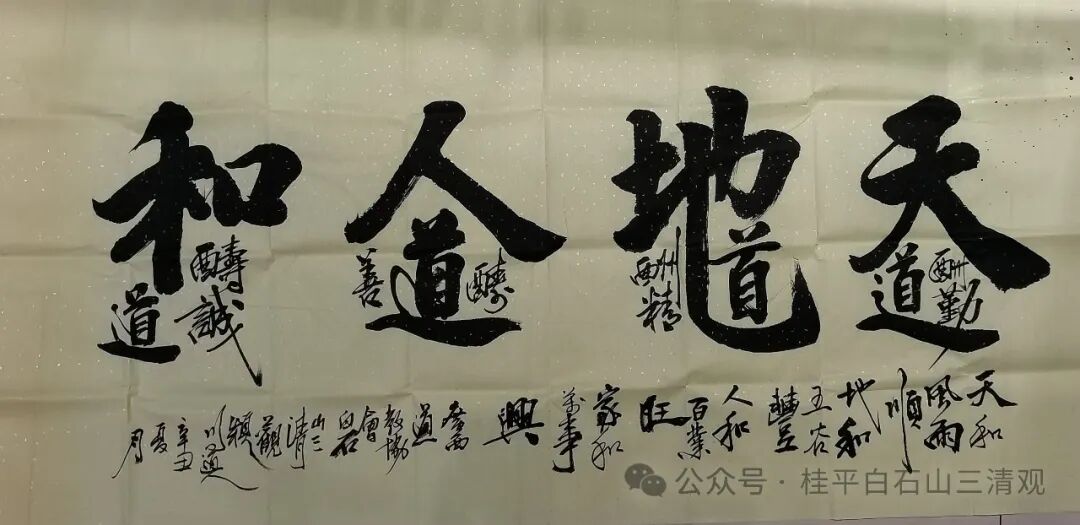 天地人和
天道酬勤
地道酬精
人道醻善
和道醻誠
天和
風雨
順
地和
五谷
人和
百業
旺
家和
萬事
興
廣西
道
教協
會
白石
山三
清
觀
辛丑
夏
月
公众号 · 桂平白石山三清观